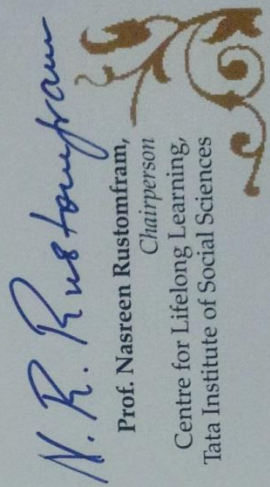 N. R. Rustomfram
Prof. Nasreen Rustomfram,
Chairperson
Centre for Lifelong Learning,
Tata Institute of Social Sciences